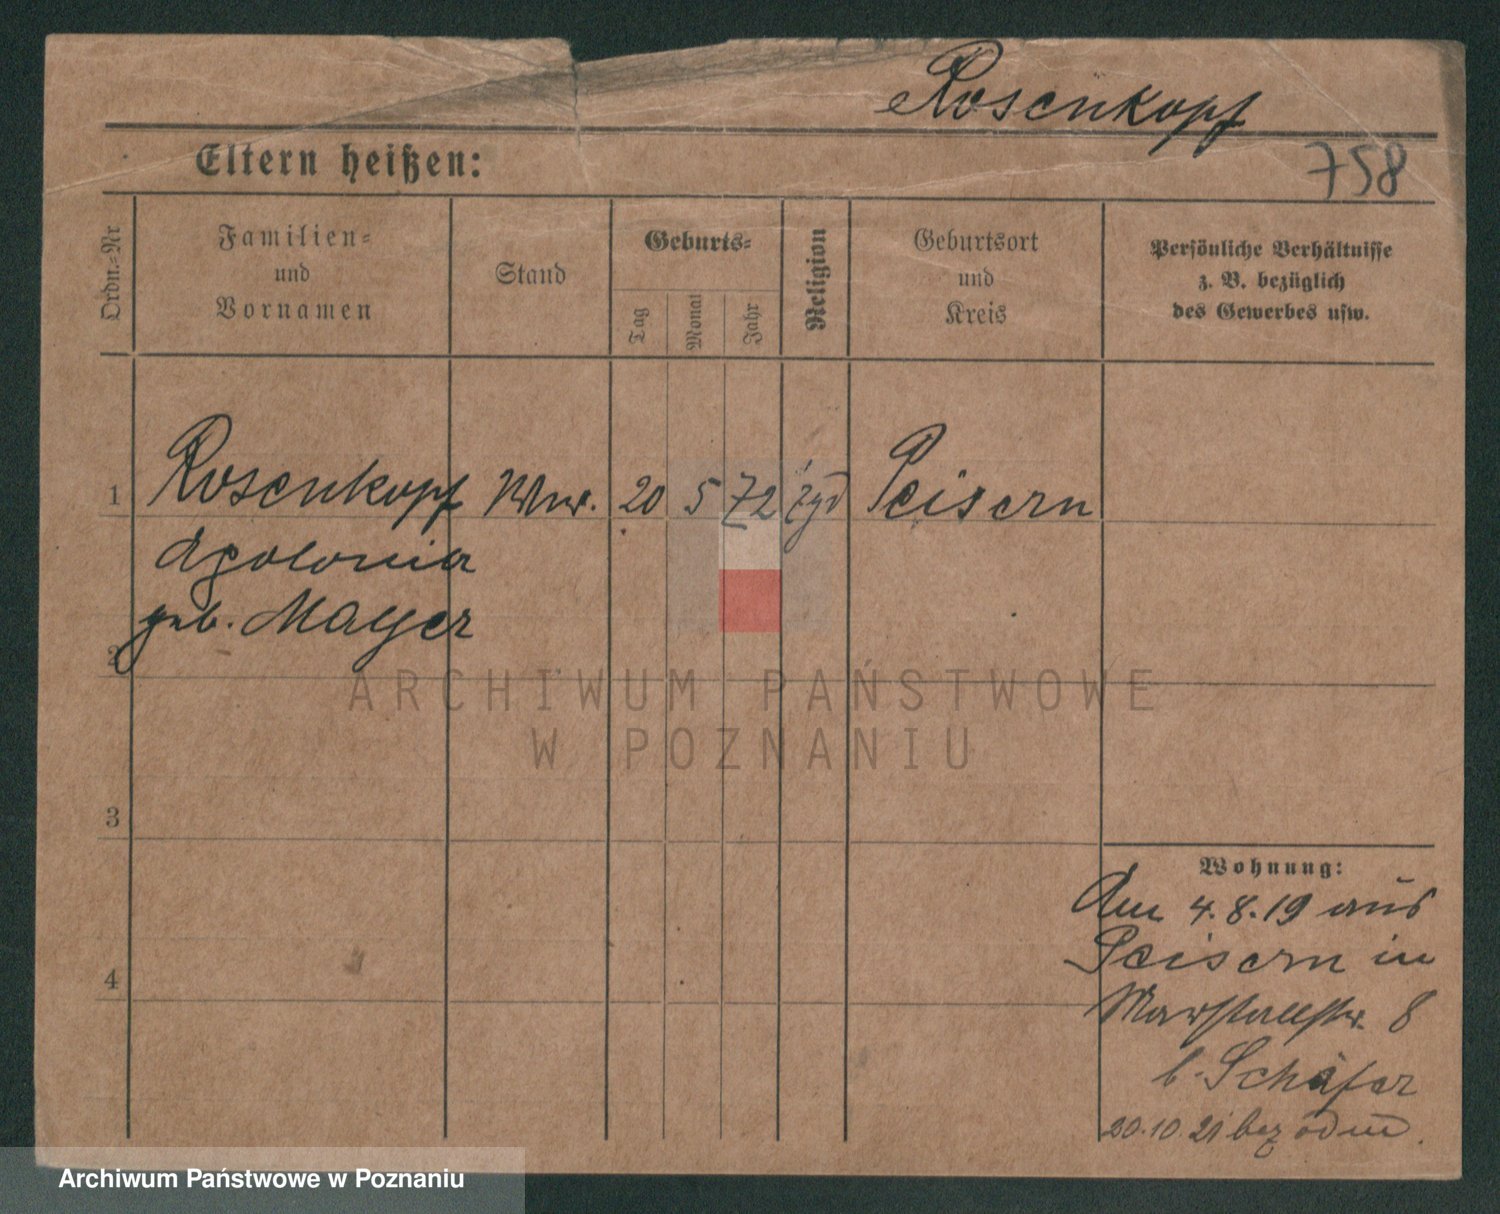 Rosenkopf
Eltern heißen:
758
Ordn.-Nr
Familien-
und
Vornamen
Stand
Geburts-
Tag
Monat
Jahr
Religion
Geburtsort
und
Kreis
Persönliche Verhältnisse
z. B. bezüglich
des Gewerbes usw.
1
Rosenkopf
Wwe.
20
5
72
żyd
Peisern
Apolonia
geb. Mayer
2
ARCHIWUM PAŃSTWOWE
W POZNANIU
3
Wohnung:
Am 4.8.19 aus
Peisern in
4
Marstallstr. 8
b. Schäfer
20.10.21 bez odm.
Archiwum Państwowe w Poznaniu